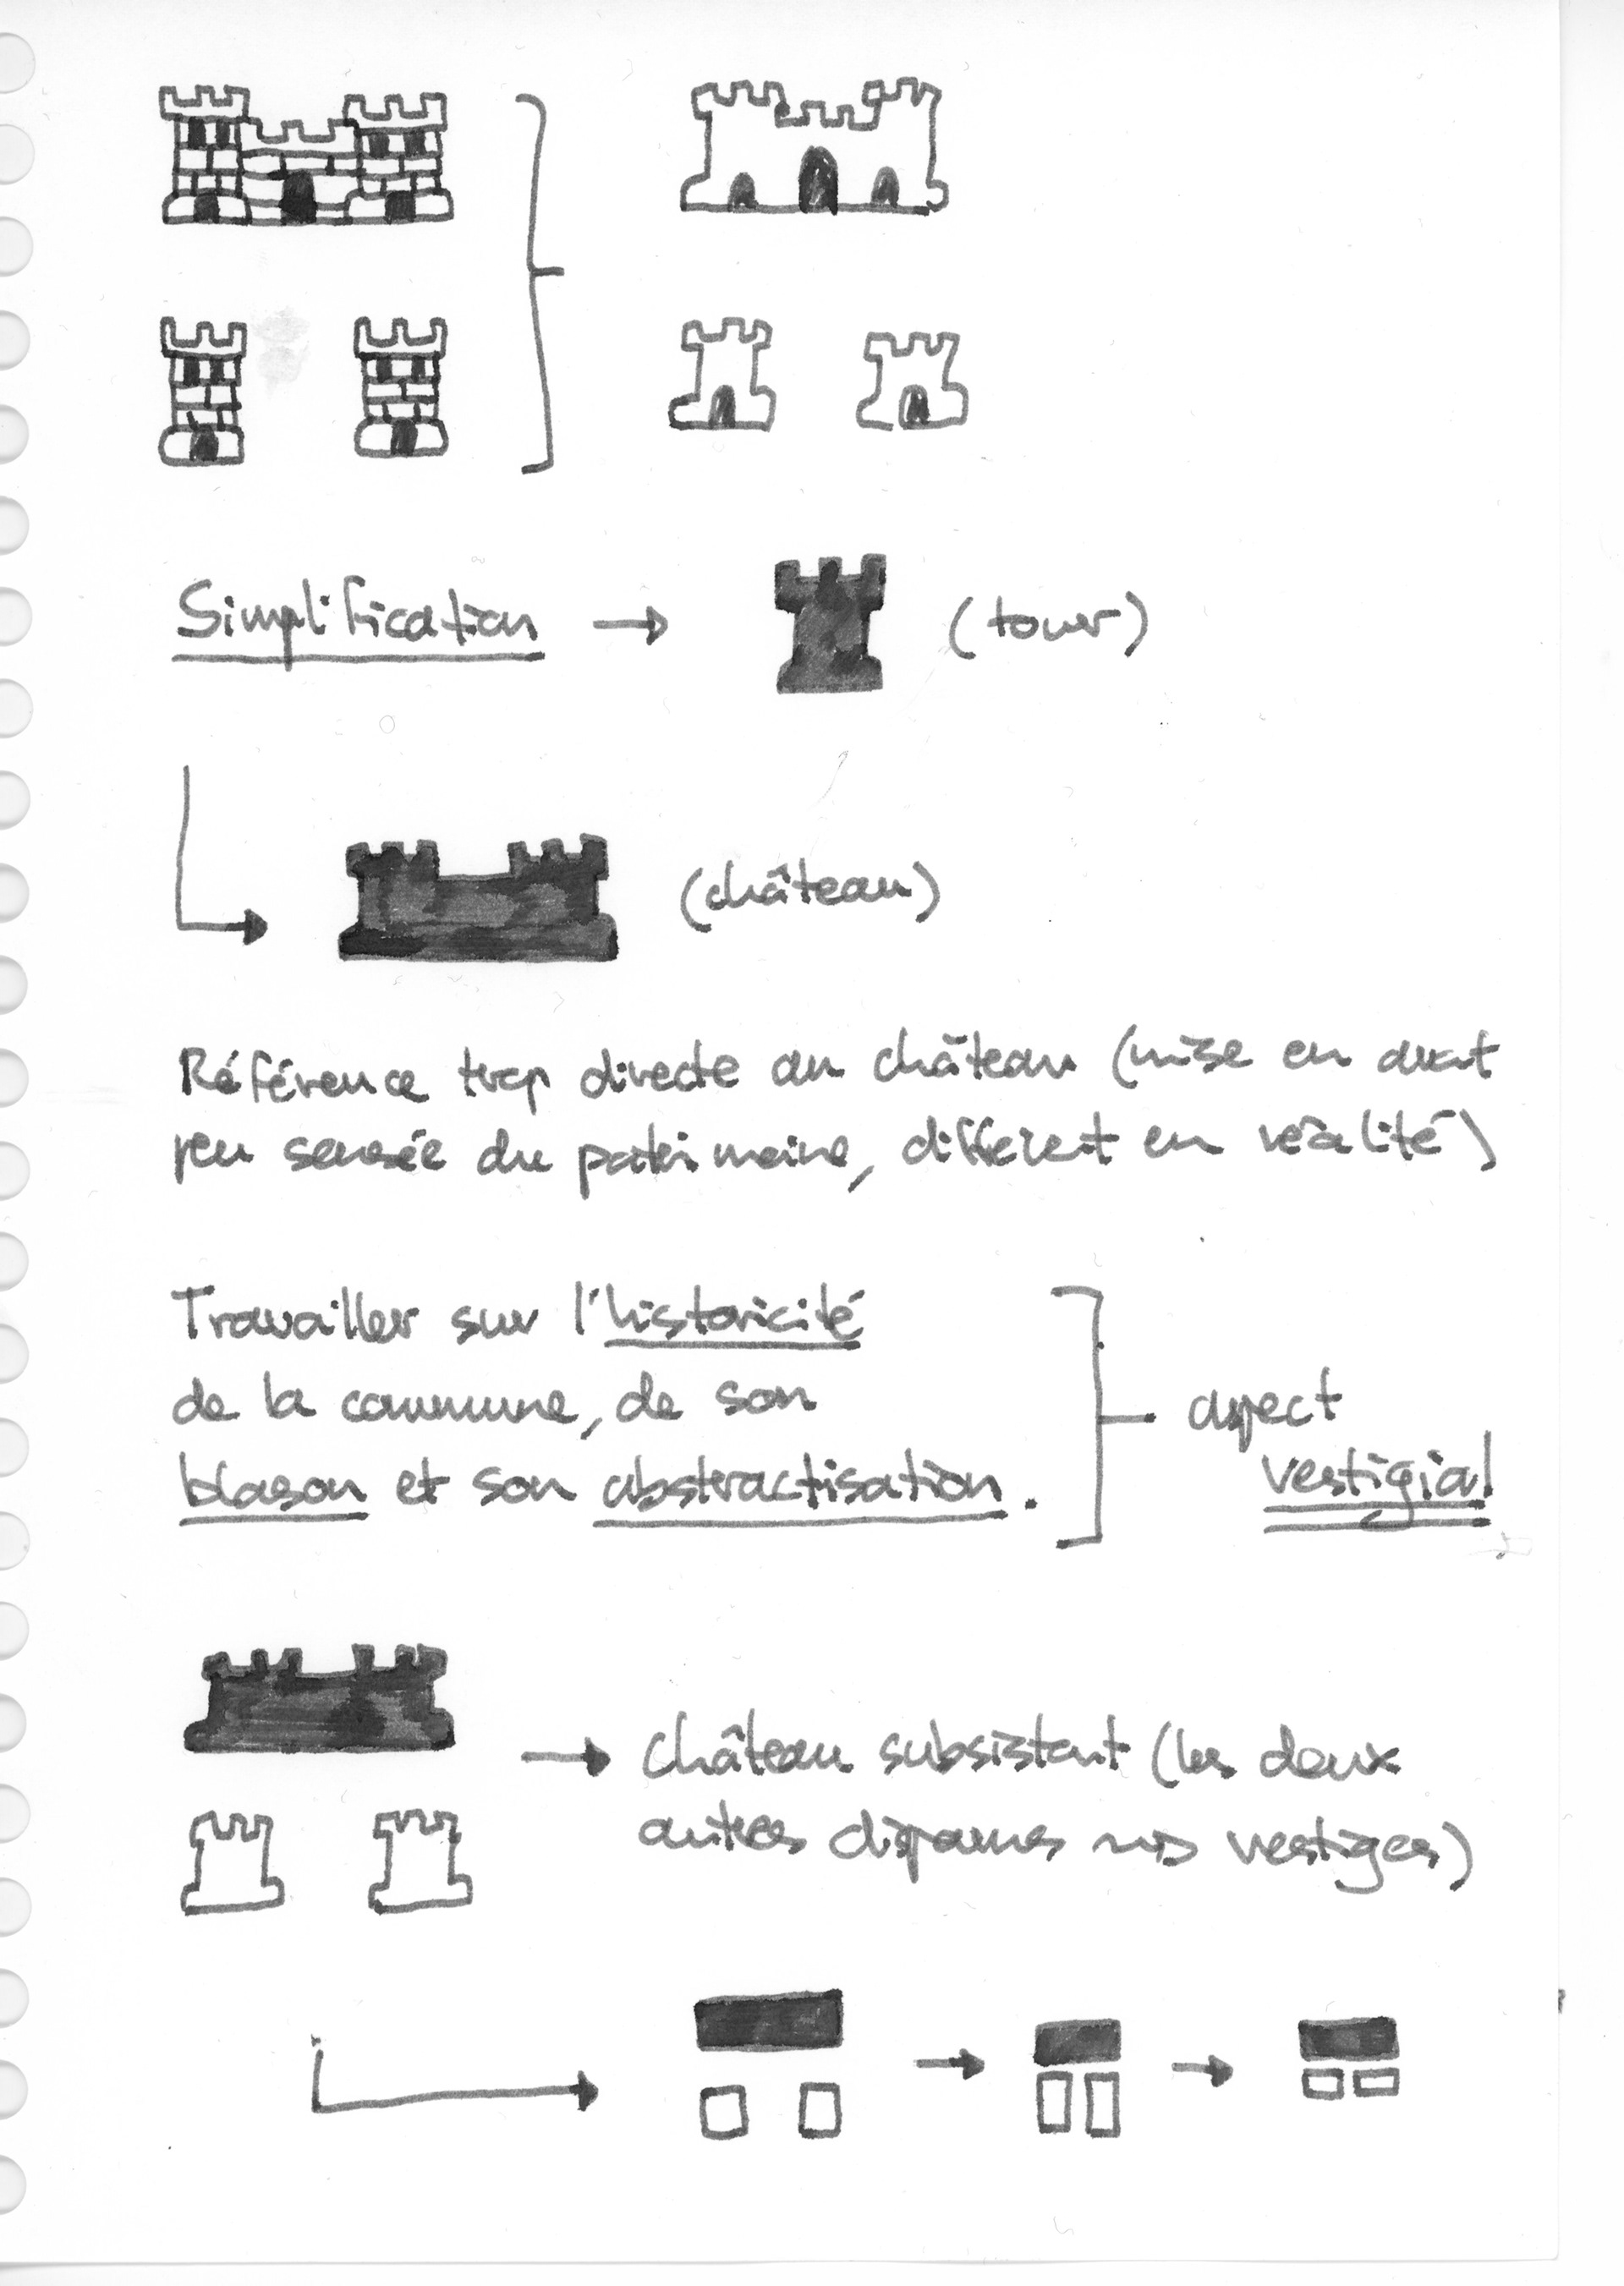 Simplification → (tour)
(château)
Référence trop directe au château (mise en avant
peu sensée du patrimoine, différent en réalité)
Travailler sur l'historicité
de la commune, de son
blason et son abstractisation.
aspect
vestigial
→ château subsistant (les deux
autres disparues vestiges)